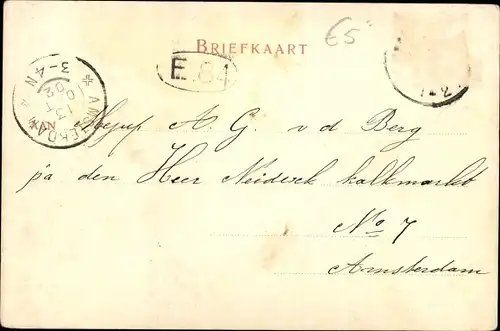 BRIEFKAART
E5
E. 84
AMSTERDAM
3-4 N
13
02
AAN Mejuf A. G. v d Berg
p/a den Heer Neiderk kalkmarkt
No 7
Amsterdam